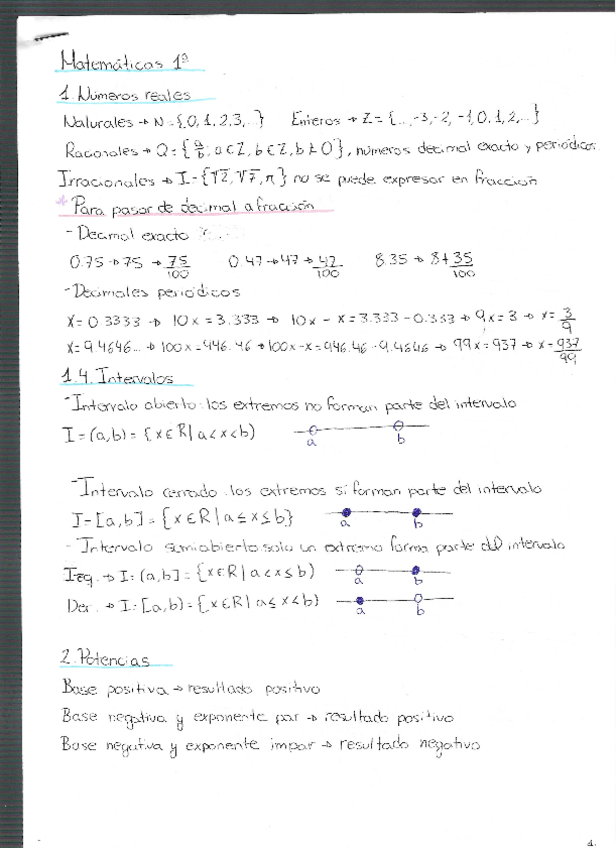 Matemáticas 1º
1. Números reales
Naturales → N={0,1,2,3,...} Enteros → Z={...,-3,-2,-1,0,1,2,...}
Racionales → Q={a/b, a∈Z, b∈Z, b≠0}, números decimal exacto y periódicos
Irracionales → I={√2, √7, π} no se puede expresar en fracción
* Para pasar de decimal a fracción
- Decimal exacto
0.75 → 75 → 75/100 0.47 → 47 → 47/100 8.35 → 8+35/100
- Decimales periódicos
x=0.3333 → 10x=3.333 → 10x-x=3.333-0.333 → 9x=3 → x=3/9
x=9.4646... → 100x=946.46 → 100x-x=946.46-9.4646 → 99x=937 → x=937/99
1.4. Intervalos
- Intervalo abierto: los extremos no forman parte del intervalo
I=(a,b)={x∈R|a<x<b}
a b
- Intervalo cerrado: los extremos si forman parte del intervalo
I=[a,b]={x∈R|a≤x≤b}
a b
- Intervalo semiabierto: solo un extremo forma parte del intervalo
Izq. → I:(a,b]={x∈R|a<x≤b)
a b
Der. → I:[a,b)={x∈R|a≤x<b}
a b
2. Potencias
Base positiva → resultado positivo
Base negativa y exponente par → resultado positivo
Base negativa y exponente impar → resultado negativo